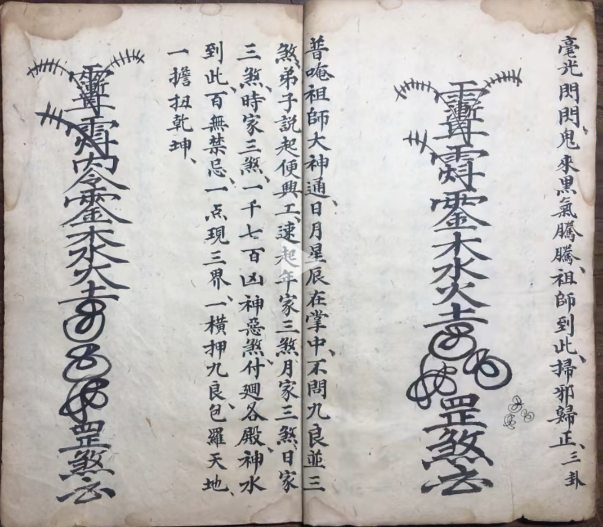 毫光閃閃、鬼來黑氣騰騰、祖師到此、掃邪歸正、三卦
金木水火土
罡煞
普唵祖師大神通、日月星辰在掌中、不問九良並三
煞、弟子說起便興工、速起年家三煞月家三煞、日家
三煞、時家三煞、一千七百凶神惡煞付廻各殿、神水
到此、百無禁忌、一点現三界、一橫押九良、包羅天地、
一擔扭乾坤、
木水火土
罡煞